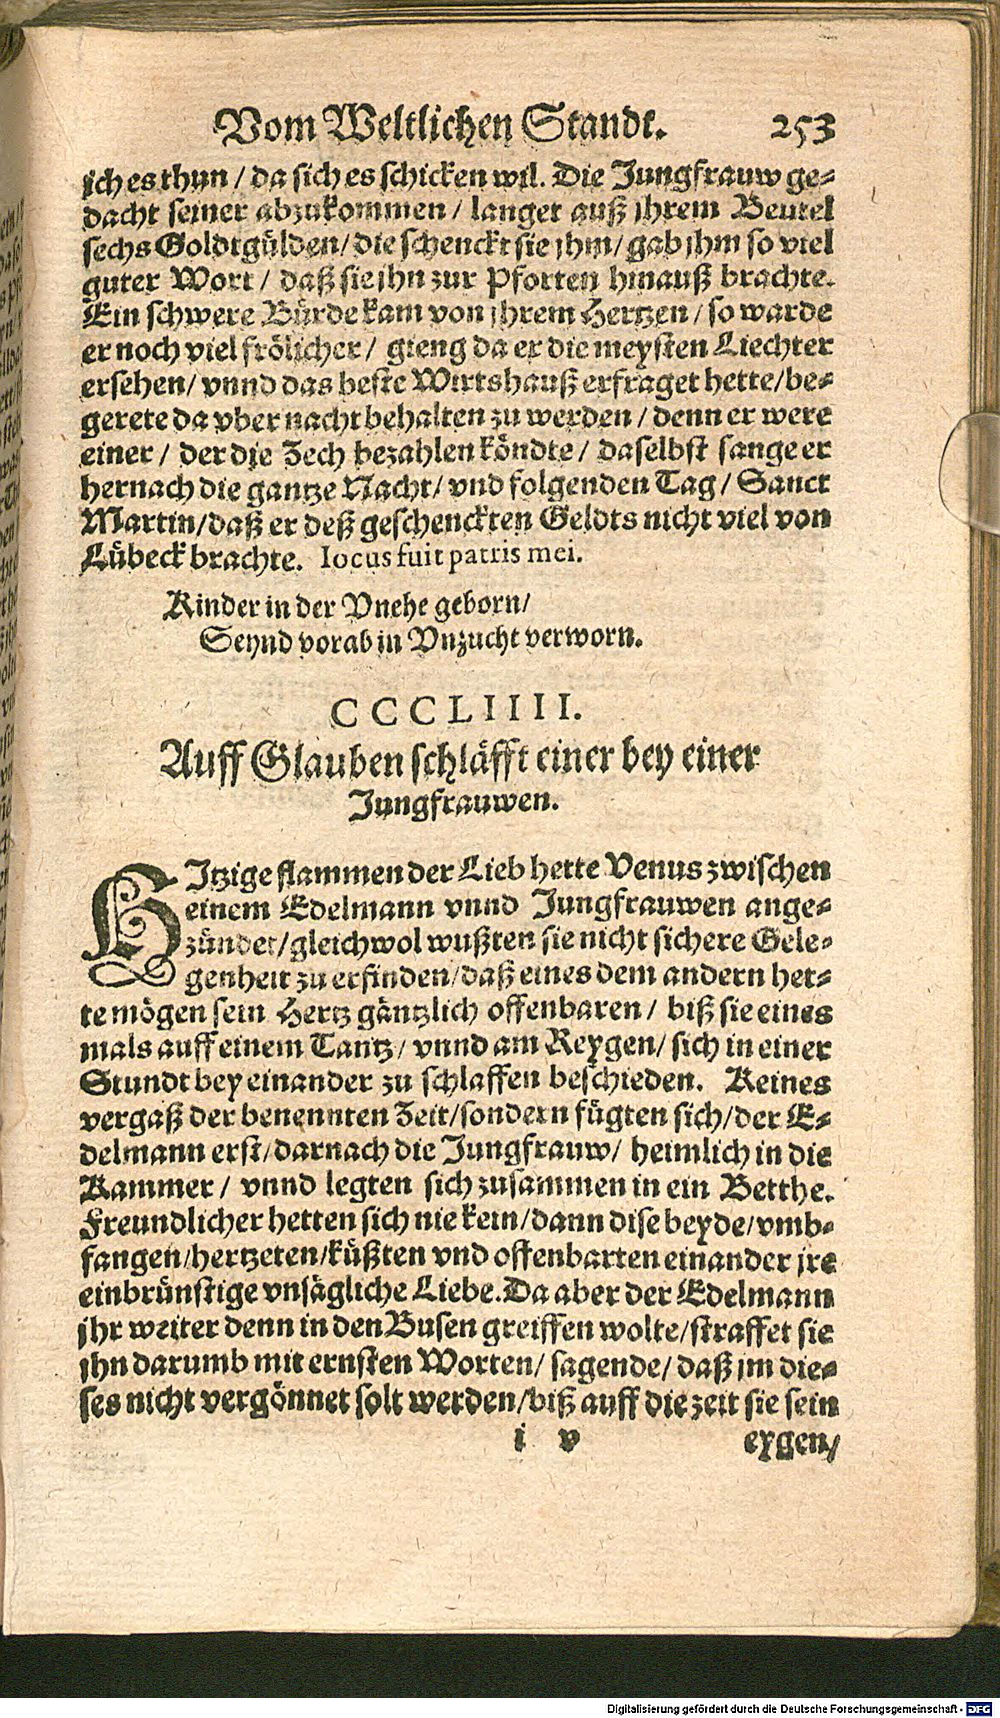 Vom Weltlichen Standt. 253
ich es thun / da sich es schicken wil. Die Jungfrauw ge-
dacht seiner abzukommen / langet auß jhrem Beutel
sechs Goldtgülden / die schenckt sie jhm / gab jhm so viel
guter Wort / daß sie jhn zur Pforten hinauß brachte.
Ein schwere Bürde kam von jhrem Hertzen / so warde
er noch viel frölicher / gieng da er die meysten Liechter
ersehen / vnnd das beste Wirtshauß erfraget hette / be-
gerete da vber nacht behalten zu werden / denn er were
einer / der die Zech bezahlen köndte / daselbst sange er
hernach die gantze Nacht / vnd folgenden Tag / Sanct
Martin / daß er deß geschenckten Geldts nicht viel von
Lübeck brachte. Iocus fuit patris mei.
Kinder in der Vnehe geborn /
Seynd vorab in Vnzucht verworn.
CCCLIIII.
Auff Glauben schläfft einer bey einer
Jungfrauwen.
HItzige flammen der Lieb hette Venus zwischen
einem Edelmann vnnd Jungfrauwen ange-
zündet / gleichwol wußten sie nicht sichere Gele-
genheit zu erfinden / daß eines dem andern het-
te mögen sein Hertz gäntzlich offenbaren / biß sie eines
mals auff einem Tantz / vnnd am Reygen / sich in einer
Stundt bey einander zu schlaffen beschieden. Keines
vergaß der benennten Zeit / sondern fügten sich / der E-
delmann erst / darnach die Jungfrauw / heimlich in die
Kammer / vnnd legten sich zusammen in ein Betthe.
Freundlicher hetten sich nie kein / dann dise beyde / vmb-
fangen / hertzeten / küßten vnd offenbarten einander jre
einbrünstige vnsägliche Liebe. Da aber der Edelmann
jhr weiter denn in den Busen greiffen wolte / straffet sie
jhn darumb mit ernsten Worten / sagende / daß jm die-
ses nicht vergönnet solt werden / biß auff die zeit sie sein
i v eygen /
Digitalisierung gefördert durch die Deutsche Forschungsgemeinschaft - DFG